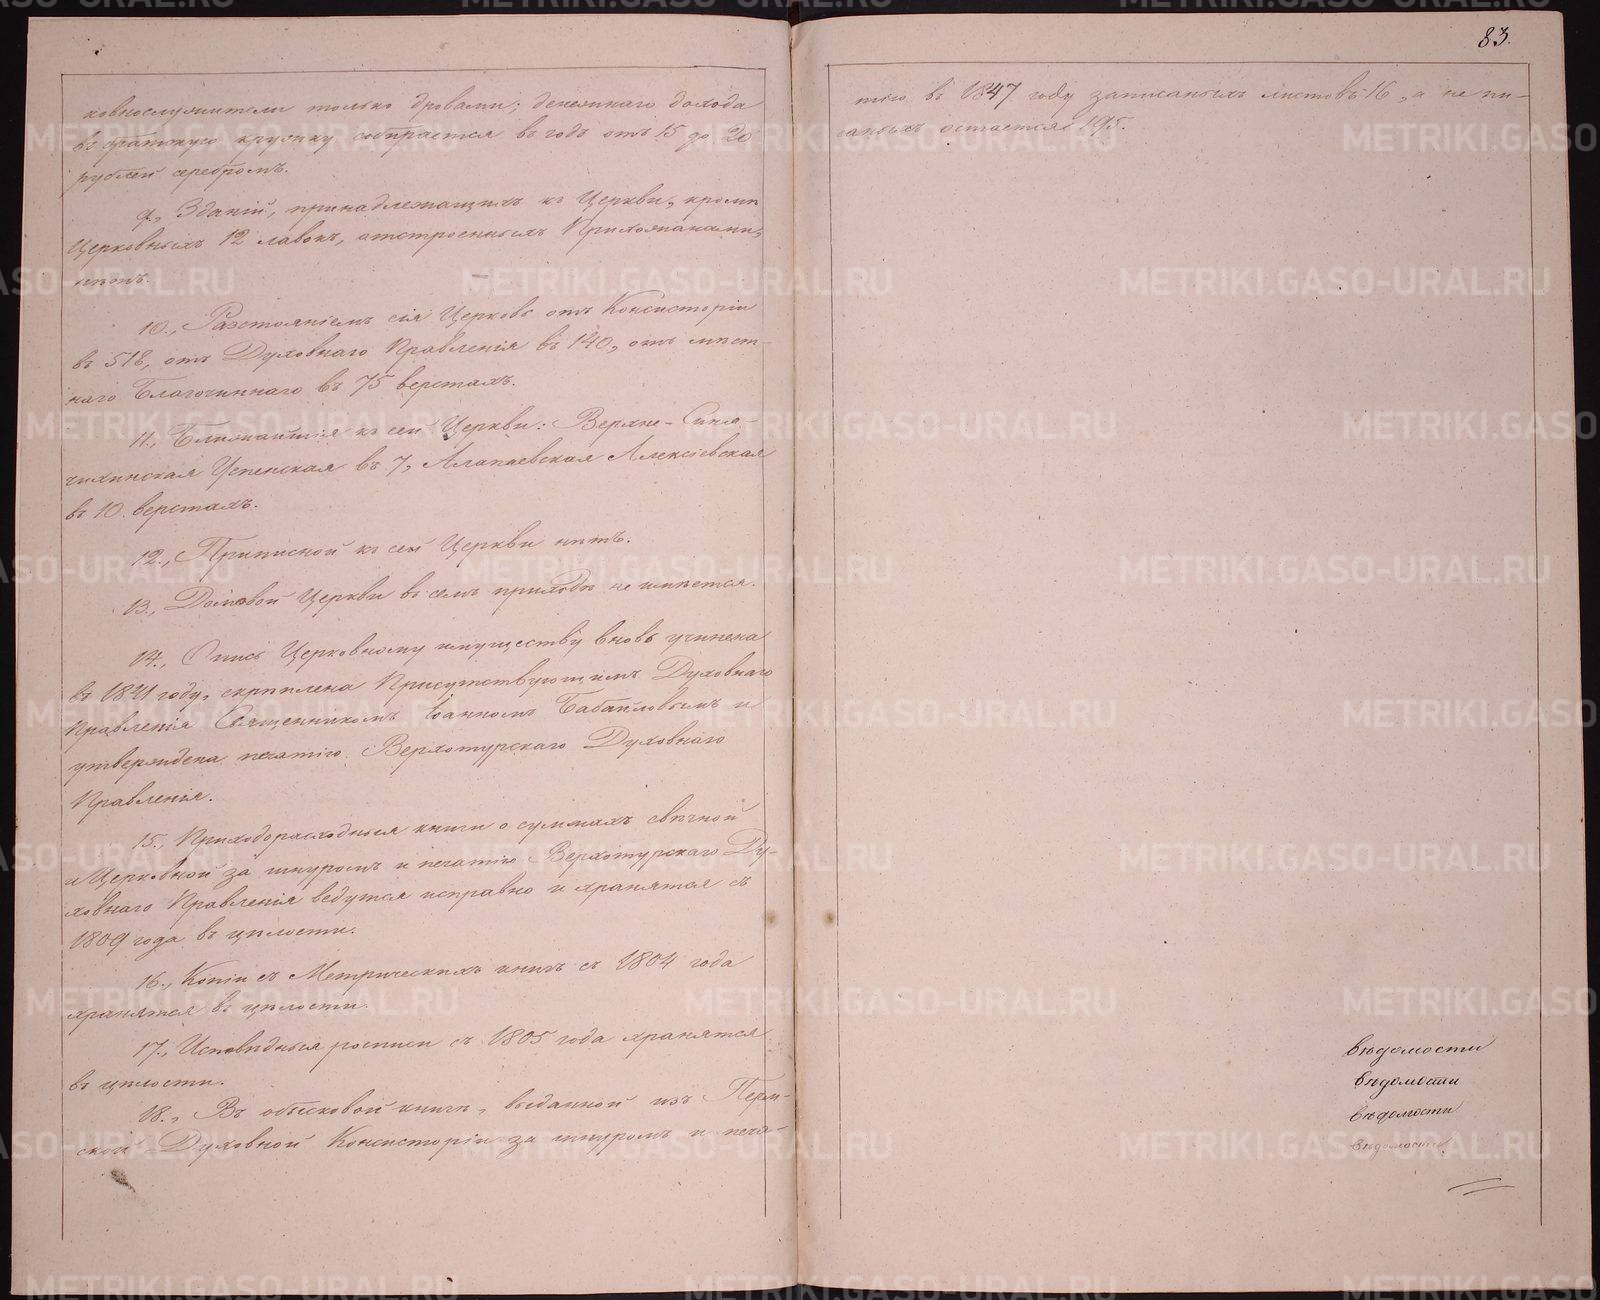 ковнослужители только дровами; денежнаго дохода
въ братскую кружку собирается въ годъ отъ 15 до 20
рублей серебромъ.
9., Зданій, принадлежащихъ къ Церкви, кромѣ
Церковныхъ 12 лавокъ, отстроенныхъ Прихожанами,
нѣтъ.
10., Разстояніемъ сія Церковь отъ Консисторіи
въ 518, отъ Духовнаго Правленія въ 140, отъ мѣст-
наго Благочиннаго въ 75 верстахъ.
11., Ближайшія къ сей Церкви: Верхне-Синя-
чихинская Успенская въ 7, Алапаевская Алексіевская
въ 10 верстахъ.
12., Приписной къ сей Церкви нѣтъ.
13., Домовой Церкви въ семъ приходѣ не имѣется.
14., Опись Церковному имуществу вновь учинена
въ 1821 году, скрѣплена Присутствующимъ Духовнаго
Правленія Священникомъ Іоанномъ Бабаиловымъ и
утверждена печатію Верхотурскаго Духовнаго
Правленія.
15., Приходорасходныя книги о суммахъ свѣчной
и Церковной за шнуромъ и печатію Верхотурскаго Ду-
ховнаго Правленія ведутся исправно и хранятся съ
1809 года въ цѣлости.
16., Копіи съ Метрическихъ книгъ съ 1804 года
хранятся въ цѣлости.
17., Исповѣдныя росписи съ 1805 года хранятся
въ цѣлости.
18., Въ обысковой книгѣ, выданной изъ Перм-
ской Духовной Консисторіи за шнуромъ и печа-
83.
тію въ 1847 году записаныхъ листовъ 16, а не пи-
саныхъ остается 195.
вѣдомости
вѣдомости
вѣдомости
вѣдомости
METRIKI.GASO-URAL.RU